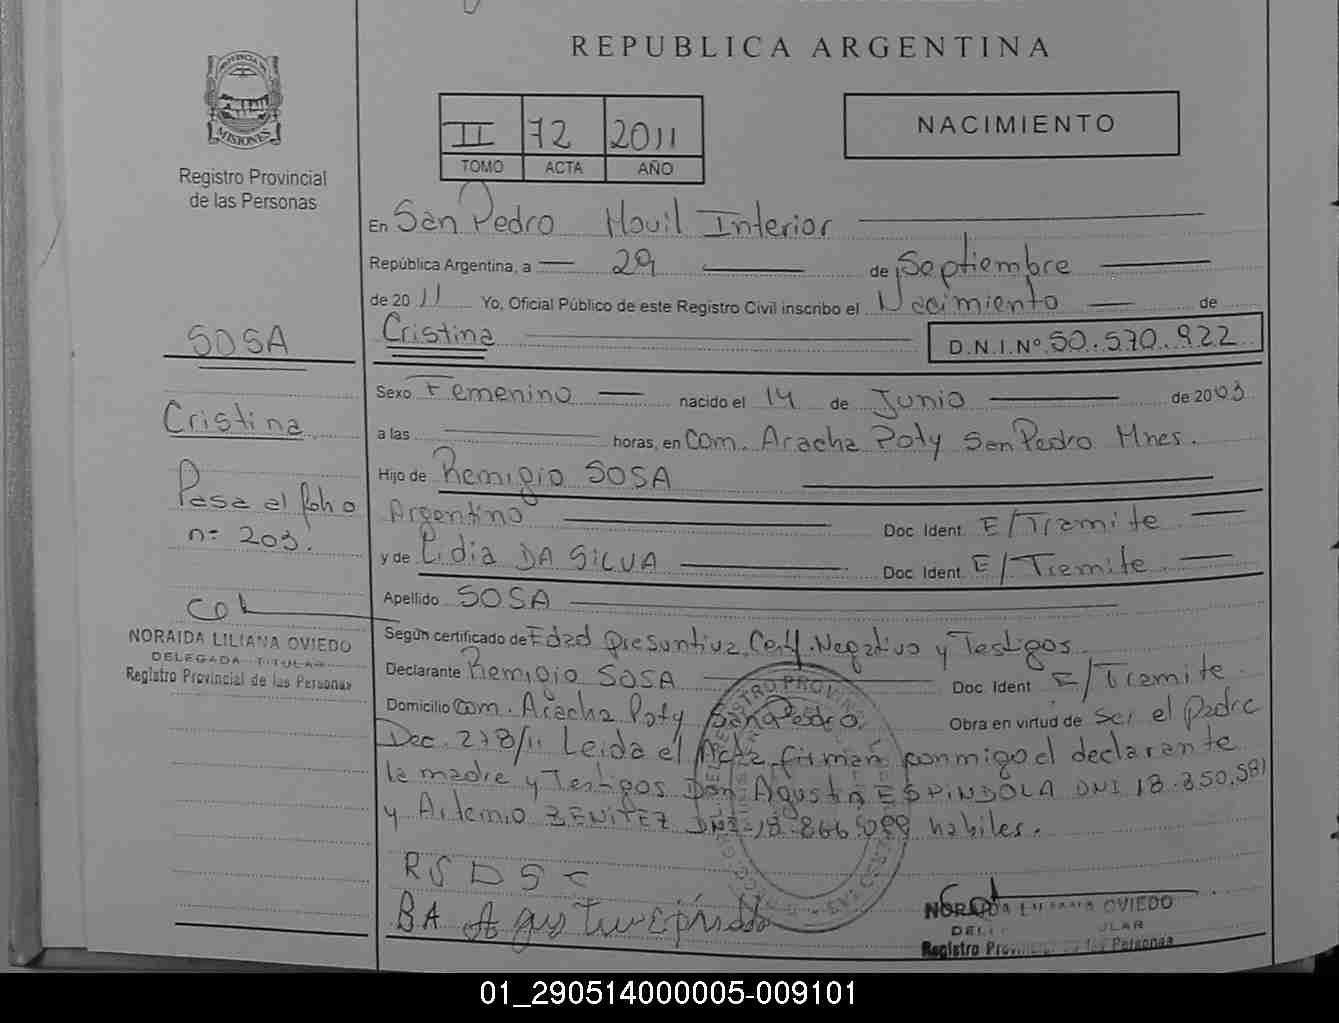 REPUBLICA ARGENTINA
PROVINCIA DE
MISIONES
Registro Provincial
de las Personas
II 72 2011
TOMO ACTA AÑO
NACIMIENTO
En San Pedro Movil Interior
República Argentina, a 29 de Septiembre
de 2011 Yo, Oficial Público de este Registro Civil inscribo el Nacimiento de
Cristina D.N.I.Nº 50.570.922
Sexo Femenino nacido el 14 de Junio de 2003
a las horas, en Com. Aracha Poty San Pedro Mnes.
Hijo de Remigio SOSA
Argentino Doc Ident. E/Tramite
y de Lidia DA SILVA Doc Ident. E/Tramite
Apellido SOSA
Según certificado de Edad Presuntiva, Cert. Negativo y Testigos
Declarante Remigio SOSA Doc Ident E/Tramite
Domicilio Com. Aracha Poty San Pedro Obra en virtud de ser el padre
Dec. 278/11 Leida el Acta, firman conmigo el declarante
la madre y Testigos Don: Agustin ESPINDOLA DNI 18.350.581
y Artemio BENITEZ DNI habiles.
RSDSC
BA Agustin
NORAIDA LILIANA OVIEDO
Registro Provincial de las Personas
SOSA
Cristina
Pasa al folio
n= 203.
NORAIDA LILIANA OVIEDO
DELEGADA TITULAR
Registro Provincial de las Personas
01_290514000005-009101